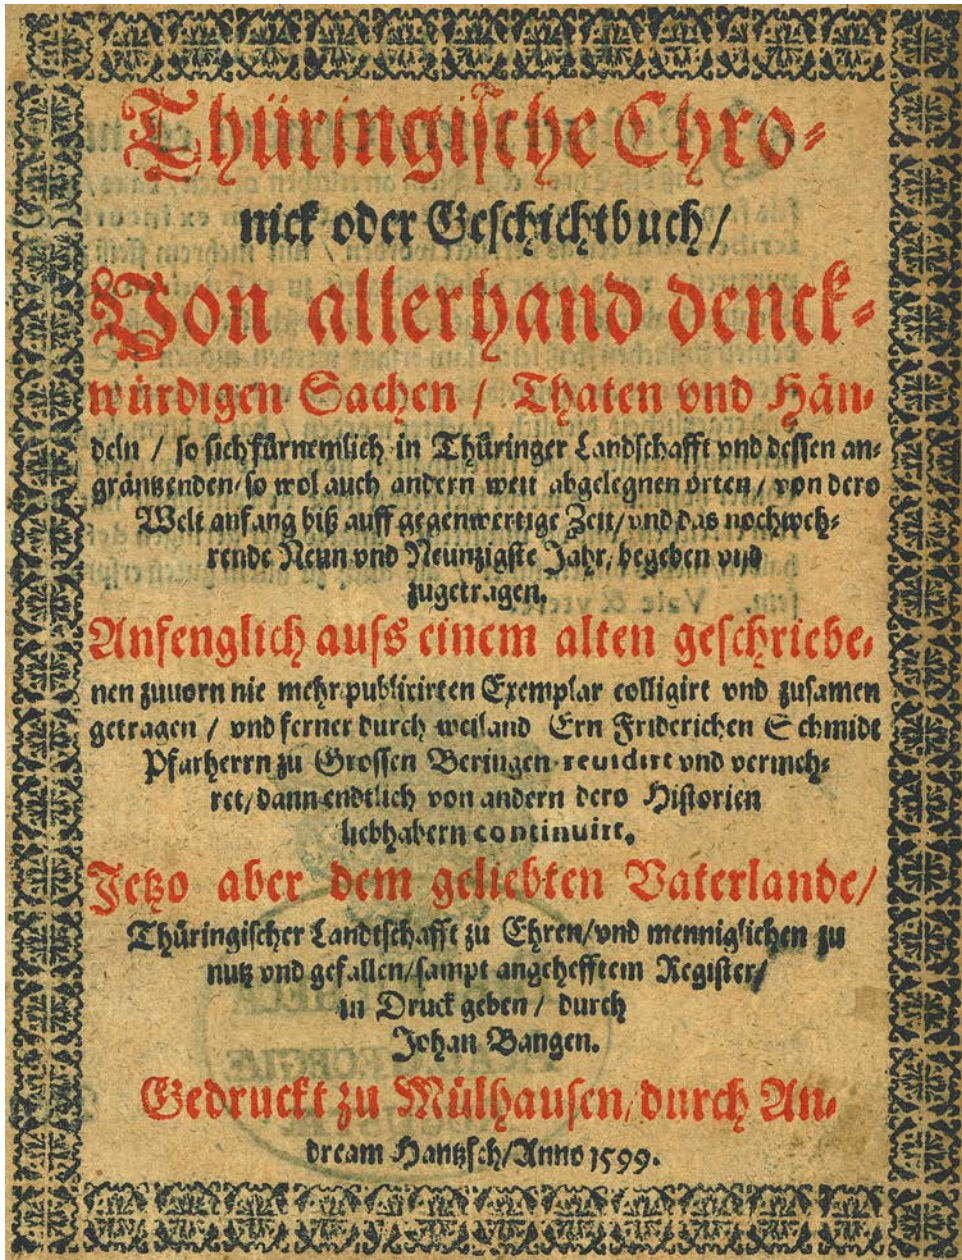 Thüringische Chro⸗
nick oder Geschichtbuch/
Von allerhand denck⸗
würdigen Sachen / Thaten vnd Hän⸗
deln / so sich fürnemlich in Thüringer Landschafft vnd dessen an⸗
gräntzenden/ so wol auch andern weit abgelegnen örten/ von dero
Welt anfang biß auff gegenwertige Zeit/ vnd das nochweh⸗
rende Neun vnd Neuntzigste Jahr/ begeben vnd
zugetragen.
Anfenglich auss einem alten geschriebe⸗
nen zuuorn nie mehr publicirten Exemplar colligirt vnd zusamen
getragen / vnd ferner durch weiland Ern Friderichen Schmidt
Pfarherrn zu Grossen Beringen reuidirt vnd vermeh⸗
ret/ dann endtlich von andern dero Historien
liebhabern continuirt.
Jetzo aber dem geliebten Vaterlande/
Thüringischer Landtschafft zu Ehren/ vnd menniglichen zu
nutz vnd gefallen/ sampt angehefftem Register/
in Druck geben / durch
Johan Bangen.
Gedruckt zu Mülhausen/ durch An⸗
dream Hantzsch/ Anno 1599.